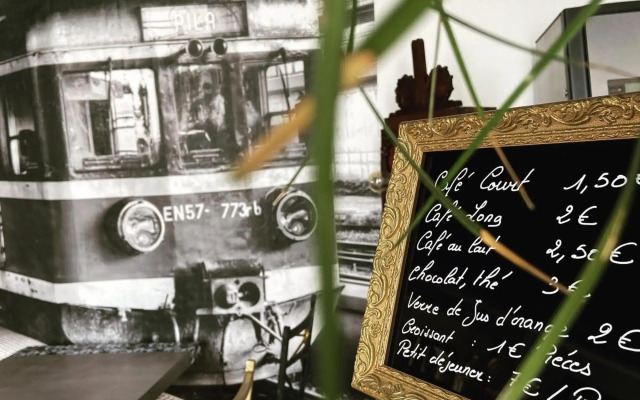 PIŁA
EN57- 773rb
Café Court 1,50€
Café Long 2€
Café au lait 2,50€
Chocolat, thé 3€
Verre de Jus d'orange 2€
Croissant : 1€ Pièces
Petit déjeuner: 7€ /